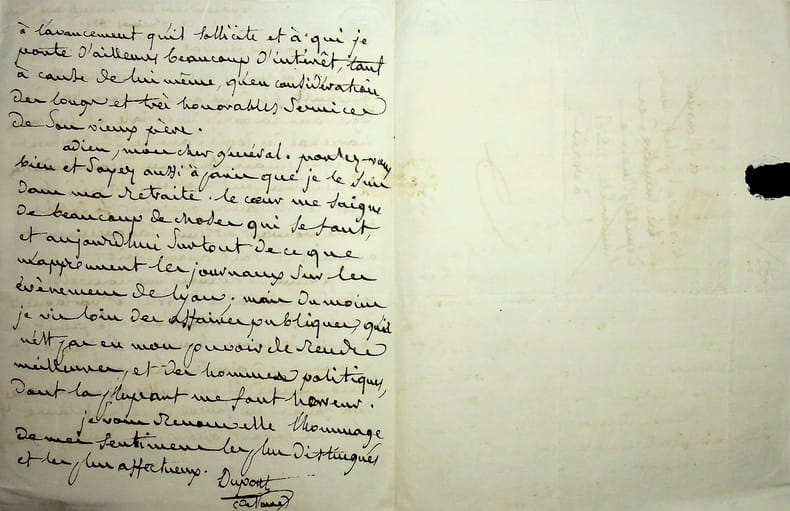 à l'avancement qu'il sollicite et à qui je
porte d'ailleurs beaucoup d'intérêt, tant
à cause de lui même, qu'en considération
des longs et très honorables services
de son vieux père.
adieu, mon cher général. portez-vous
bien et soyez aussi à que je le suis
dans ma retraite. le cœur me saigne
de beaucoup de choses qui se font,
et aujourd'hui surtout de ce que
m'apprennent les journaux sur les
évènemens de lyon; mais du moins
je vis loin des affaires publiques, qu'il
n'est pas en mon pouvoir de rendre
meilleures, et des hommes politiques,
dont la plupart me font horreur.
je vous renouvelle l'hommage
de mes sentimens les plus distingués
et les plus affectueux.
Dupont